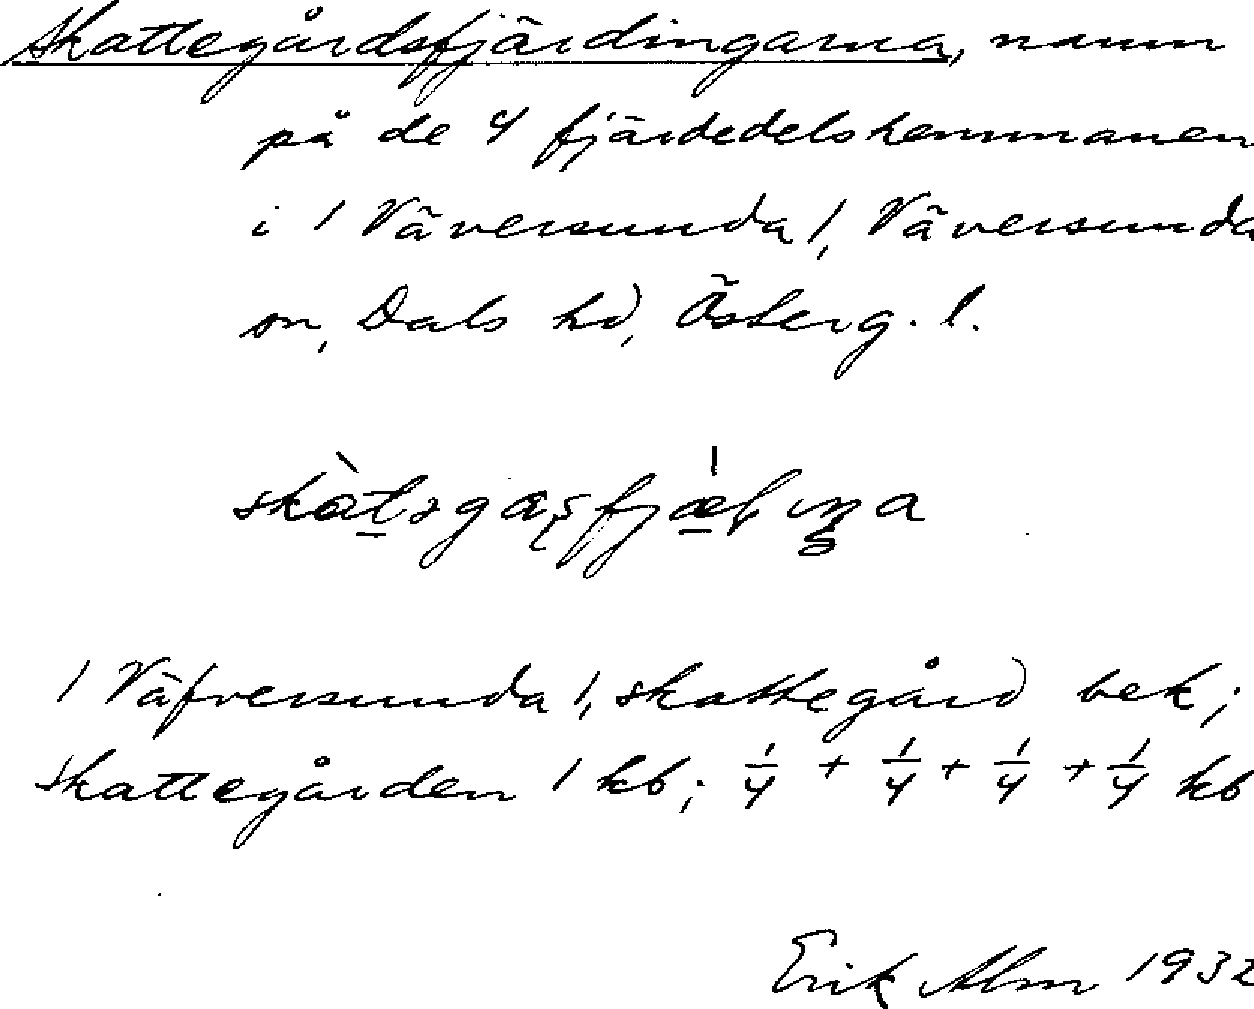 Skattegårdsfjärdingarna, namn
på de 4 fjärdedelshemmanen
i 1 Väversunda 1, Väversunda
sn, Dals hd, Österg. l.
1 Väfversunda 1, skattegård bek;
Skattegården 1 kb; 1/4 + 1/4 + 1/4 + 1/4 kb
Erik Alm 1932